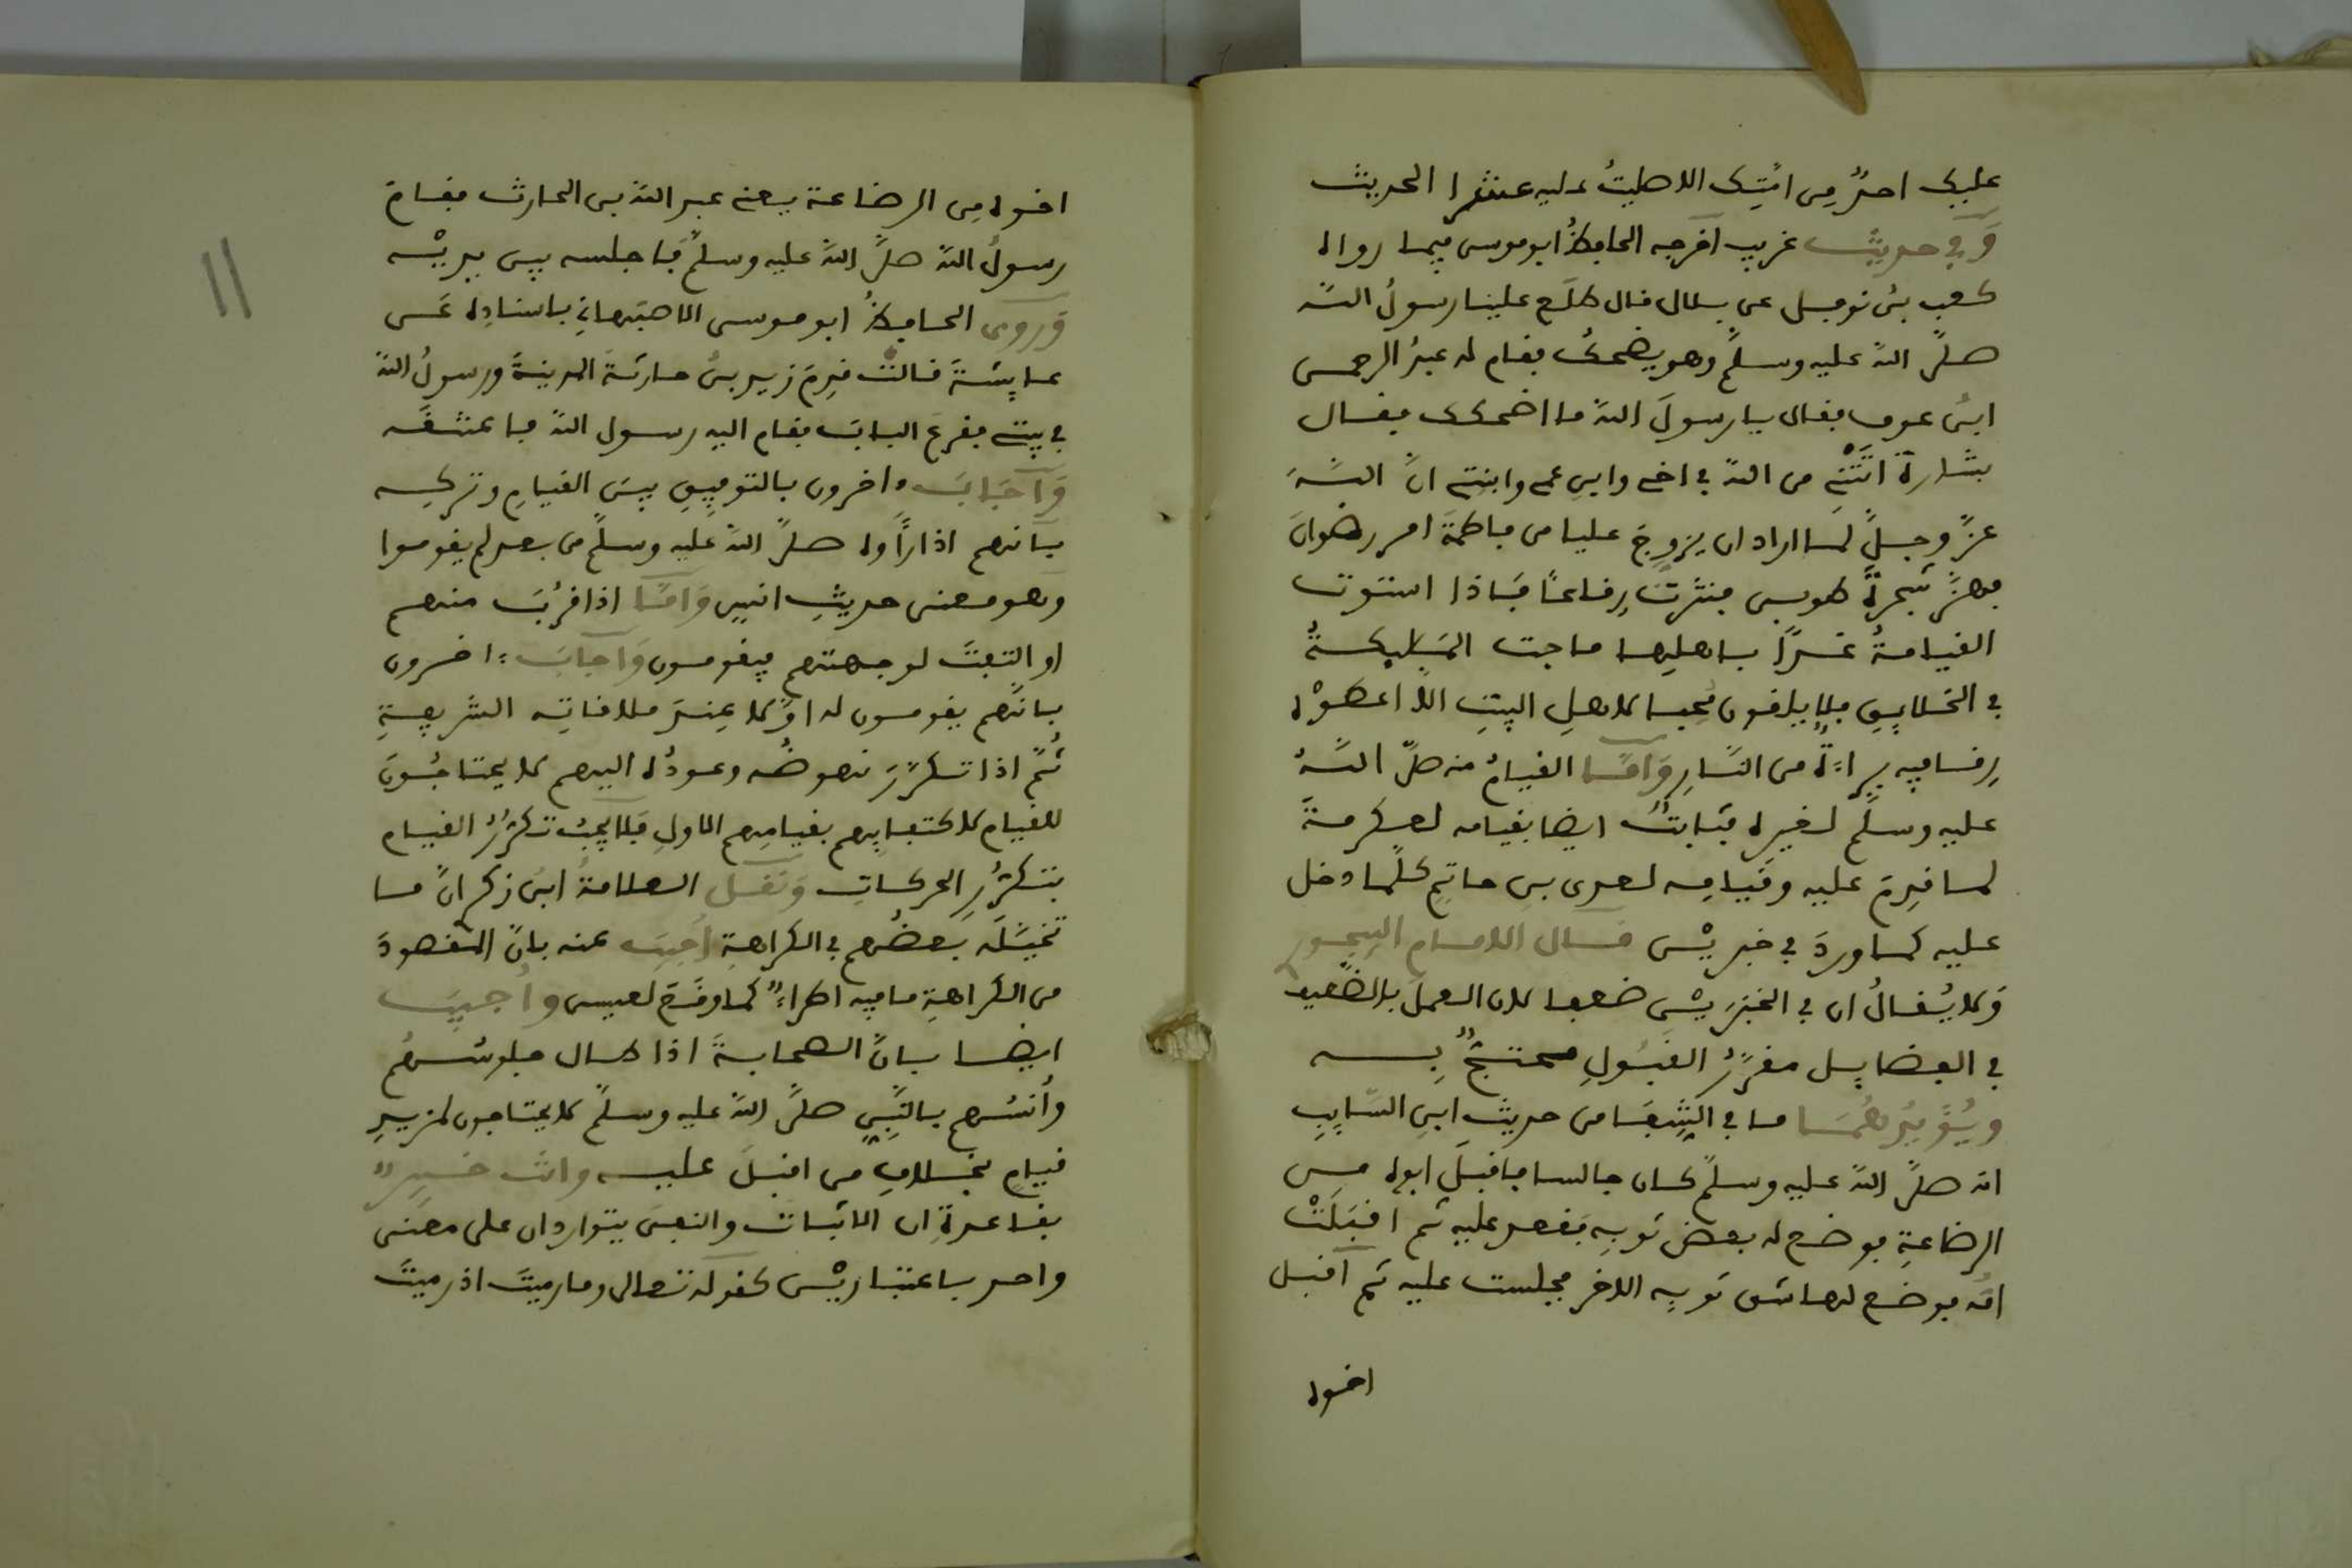 عليك احدٌ مِن امّتِك الا صليتُ عليه عشرا الحديث
وَفي حديث غريب اخرجه الحافظُ ابو موسى فيما رواه
كعب بنُ نوفل عن بلال قال طلَع علينا رسولُ اللّه
صلّى اللّه عليه وسلّم وهو يضحكُ فقام له عبدُ الرحمن
ابنُ عوف فقال يا رسولَ اللّه ما اضحكك فقال
بشارةٌ اتَتْني من اللّه في اخي وابنِ عمي وابنتي انّ اللّهَ
عزّ وجلّ لما اراد ان يزوجَ عليا من فاطمةَ امر رضوانَ
فهزّ شجرةَ طوبى فنثرت رِقاعًا فَاذا استوت
القيامةُ غدًا باهلِها ماجت الملايكةُ
في الخلايقِ فلا يلقون محبا لاهلِ البيتِ الا اعطوْه
رِقا فيه براءةٌ من النّارِ وَامّا القيامُ منه صلّى اللّهُ
عليه وسلّم لغيره فثابتٌ ايضا بقيامه لعكرمةَ
لما قدِمَ عليه وقيامِه لعدى بنِ حاتِمٍ كلّما دخل
عليه كما وردَ في خبريْن قال الامام البيجور
وَلا يُقالُ ان في الخبرَيْن ضعفا لان العملَ بالضّعيف
في الفضايل مقرّرُ القبُولِ محتجٌّ بِه
ويُؤيّدهُمَا ما في الشِّفا من حديثِ ابِي السّايِبِ
انه صلّى اللّه عليه وسلّم كان جالسا فاقبلَ ابوه من
الرضاعةِ فوضع له بعض ثوبِه فقعد عليه ثم اقبَلَتْ
امّه فوضع لها شق ثوبِه الاخر فجلست عليه ثم اقبل
اخوه
اخوه مِن الرضاعة يعني عبد اللّه بن الحارث فقامَ
رسولُ اللّه صلّى اللّه عليه وسلّم فَاجلسه بين يديْه
وَروى الحافظُ ابو موسى الاصبَهاني باسنادِه عَن
عايشةَ قالتْ قدِمَ زيد بنُ حارثةَ المدينةَ ورسولُ اللّه
في بيتي فقرعَ البابَ فقام اليه رسول اللّه فاعتنقَه
وَاجَابَ ءاخرون بالتوفيقِ بينَ القيامِ وتركِه
بانهم اذا رأَوه صلّى اللّه عليه وسلّم من بعد لم يقوموا
وهو معنى حديثِ انسٍ وَامّا اذا قرُبَ منهم
او التفتَ لوجهتهم فيقومون وَاجابَ ءاخرون
بانّهم يقومون له اوّلا عِندَ ملاقاتِه الشريفةِ
ثُمّ اذا تكرّرَ نهوضُه وعودُه اليهم لا يحتاجُونَ
للقيام لاكتفايِهم بقيامِهم الاولِ فلا يجبُ تكرّرُ القيام
بتكرّرِ الحركاتِ وَنَقل العلامةُ ابن زكرى انّ ما
تخيّلَه بعضُهم في الكراهةِ اُجيبَ عنه بانّ المقصودَ
من الكراهةِ ما فيه اطراءٌ كما وقَعَ لعيسى واُجيبَ
ايضا بانّ الصحابةَ اذا طال جلوسُهُم
واُنسُهم بالنّبيّ صلّى اللّه عليه وسلّم لا يحتاجون لمزيدِ
قيامٍ بخلافِ من اقبلَ عليه وانت خبيرٌ
بقاعدةِ ان الاثبات والنفىَ يتواردان على معنى
واحد باعتباريْن كقوله تعالى وما رميتَ اذ رميتَ
11